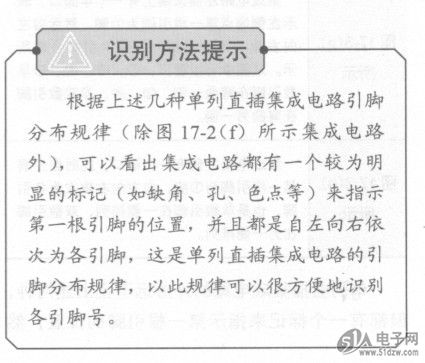 识别方法提示
根据上述几种单列直插集成电路引脚
分布规律（除图 17-2(f) 所示集成电路
外），可以看出集成电路都有一个较为明
显的标记（如缺角、孔、色点等）来指示
第一根引脚的位置，并且都是自左向右依
次为各引脚，这是单列直插集成电路的引
脚分布规律，以此规律可以很方便地识别
各引脚号。
51电子网
www.51dzw.com